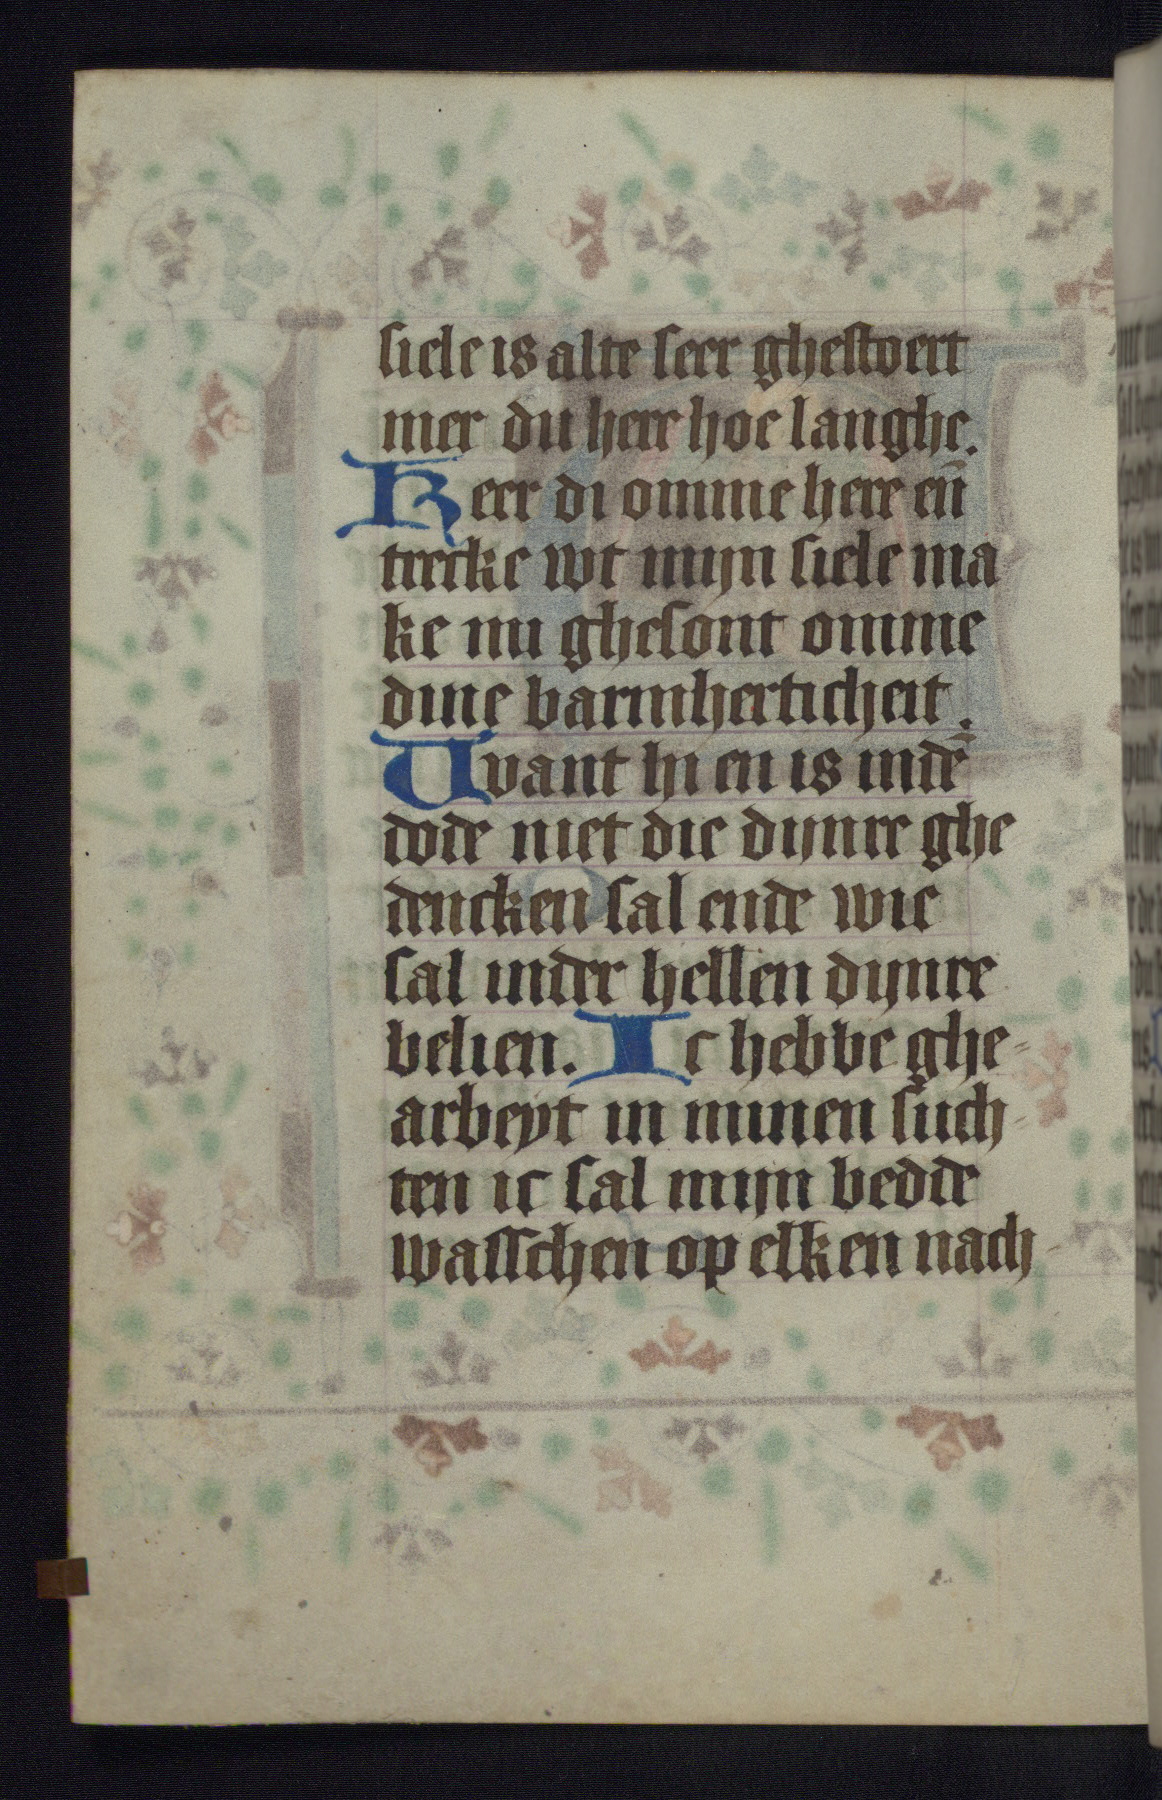 siele is alte seer ghestoert
mer du here hoe langhe.
Keer di omme here en̄
trecke wt mijn siele ma
ke mi ghesont omme
dine barmherticheit.
Uvant hi en is indē
dode niet die dijnre ghe
dencken sal ende wie
sal inder hellen dijnre
belien. Ic hebbe ghe-
arbeyt in minen such-
ten ic sal mijn bedde
wasschen op elken nach-